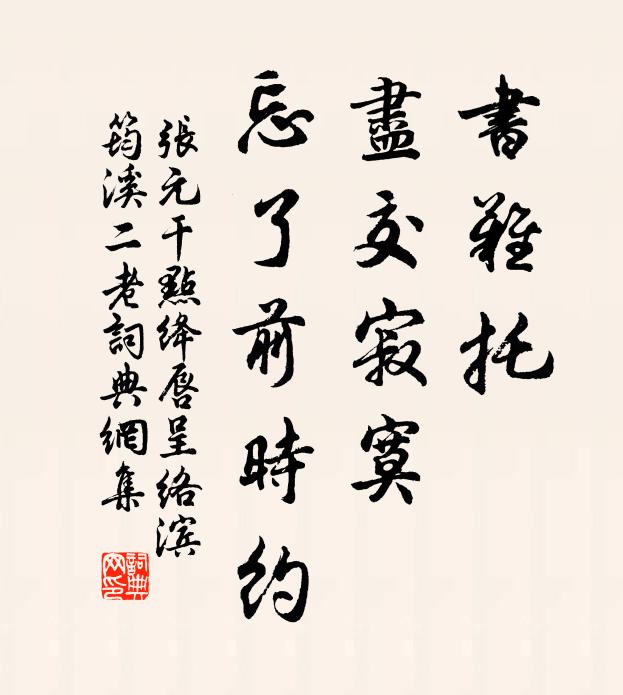 書難托
盡交寂寞
忘了前時約
張元干點絳唇呈絡濱
筠溪二老詞典網集
詞典
网印